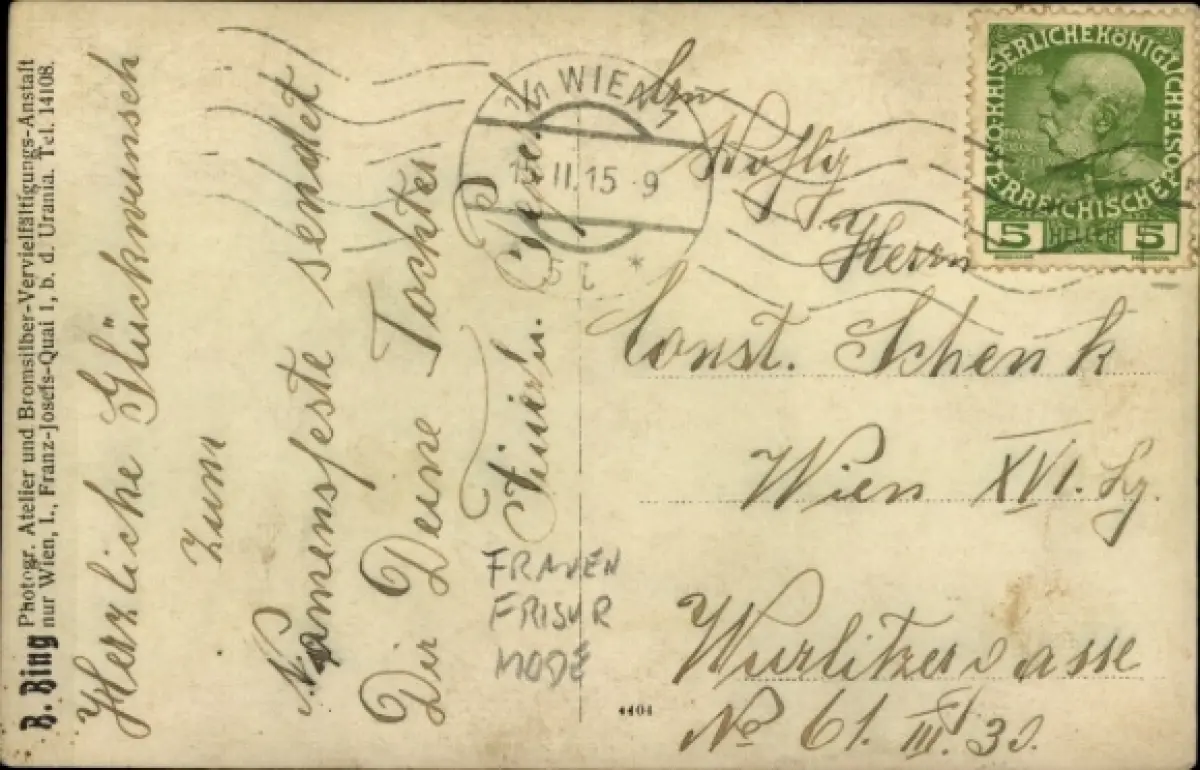 B. Bing Photogr. Atelier und Bromsilber-Vervielfältigungs-Anstalt
nur Wien, I., Franz-Josefs-Quai 1, b. d. Urania. Tel. 14108.
Herzliche Glückwunsch
zum
Namensfeste sendet
Dir Deine Tochter
FRAUEN
FRISUR
MODE
WIEN
II.15 9
KAISERLICHEKÖNIGLICHE ÖSTERREICHISCHE
1908
5 HELLER 5
Herrn
Const. Schenk
Wien XVI.
Wurlitzergasse
No 61. III. 30.
4404